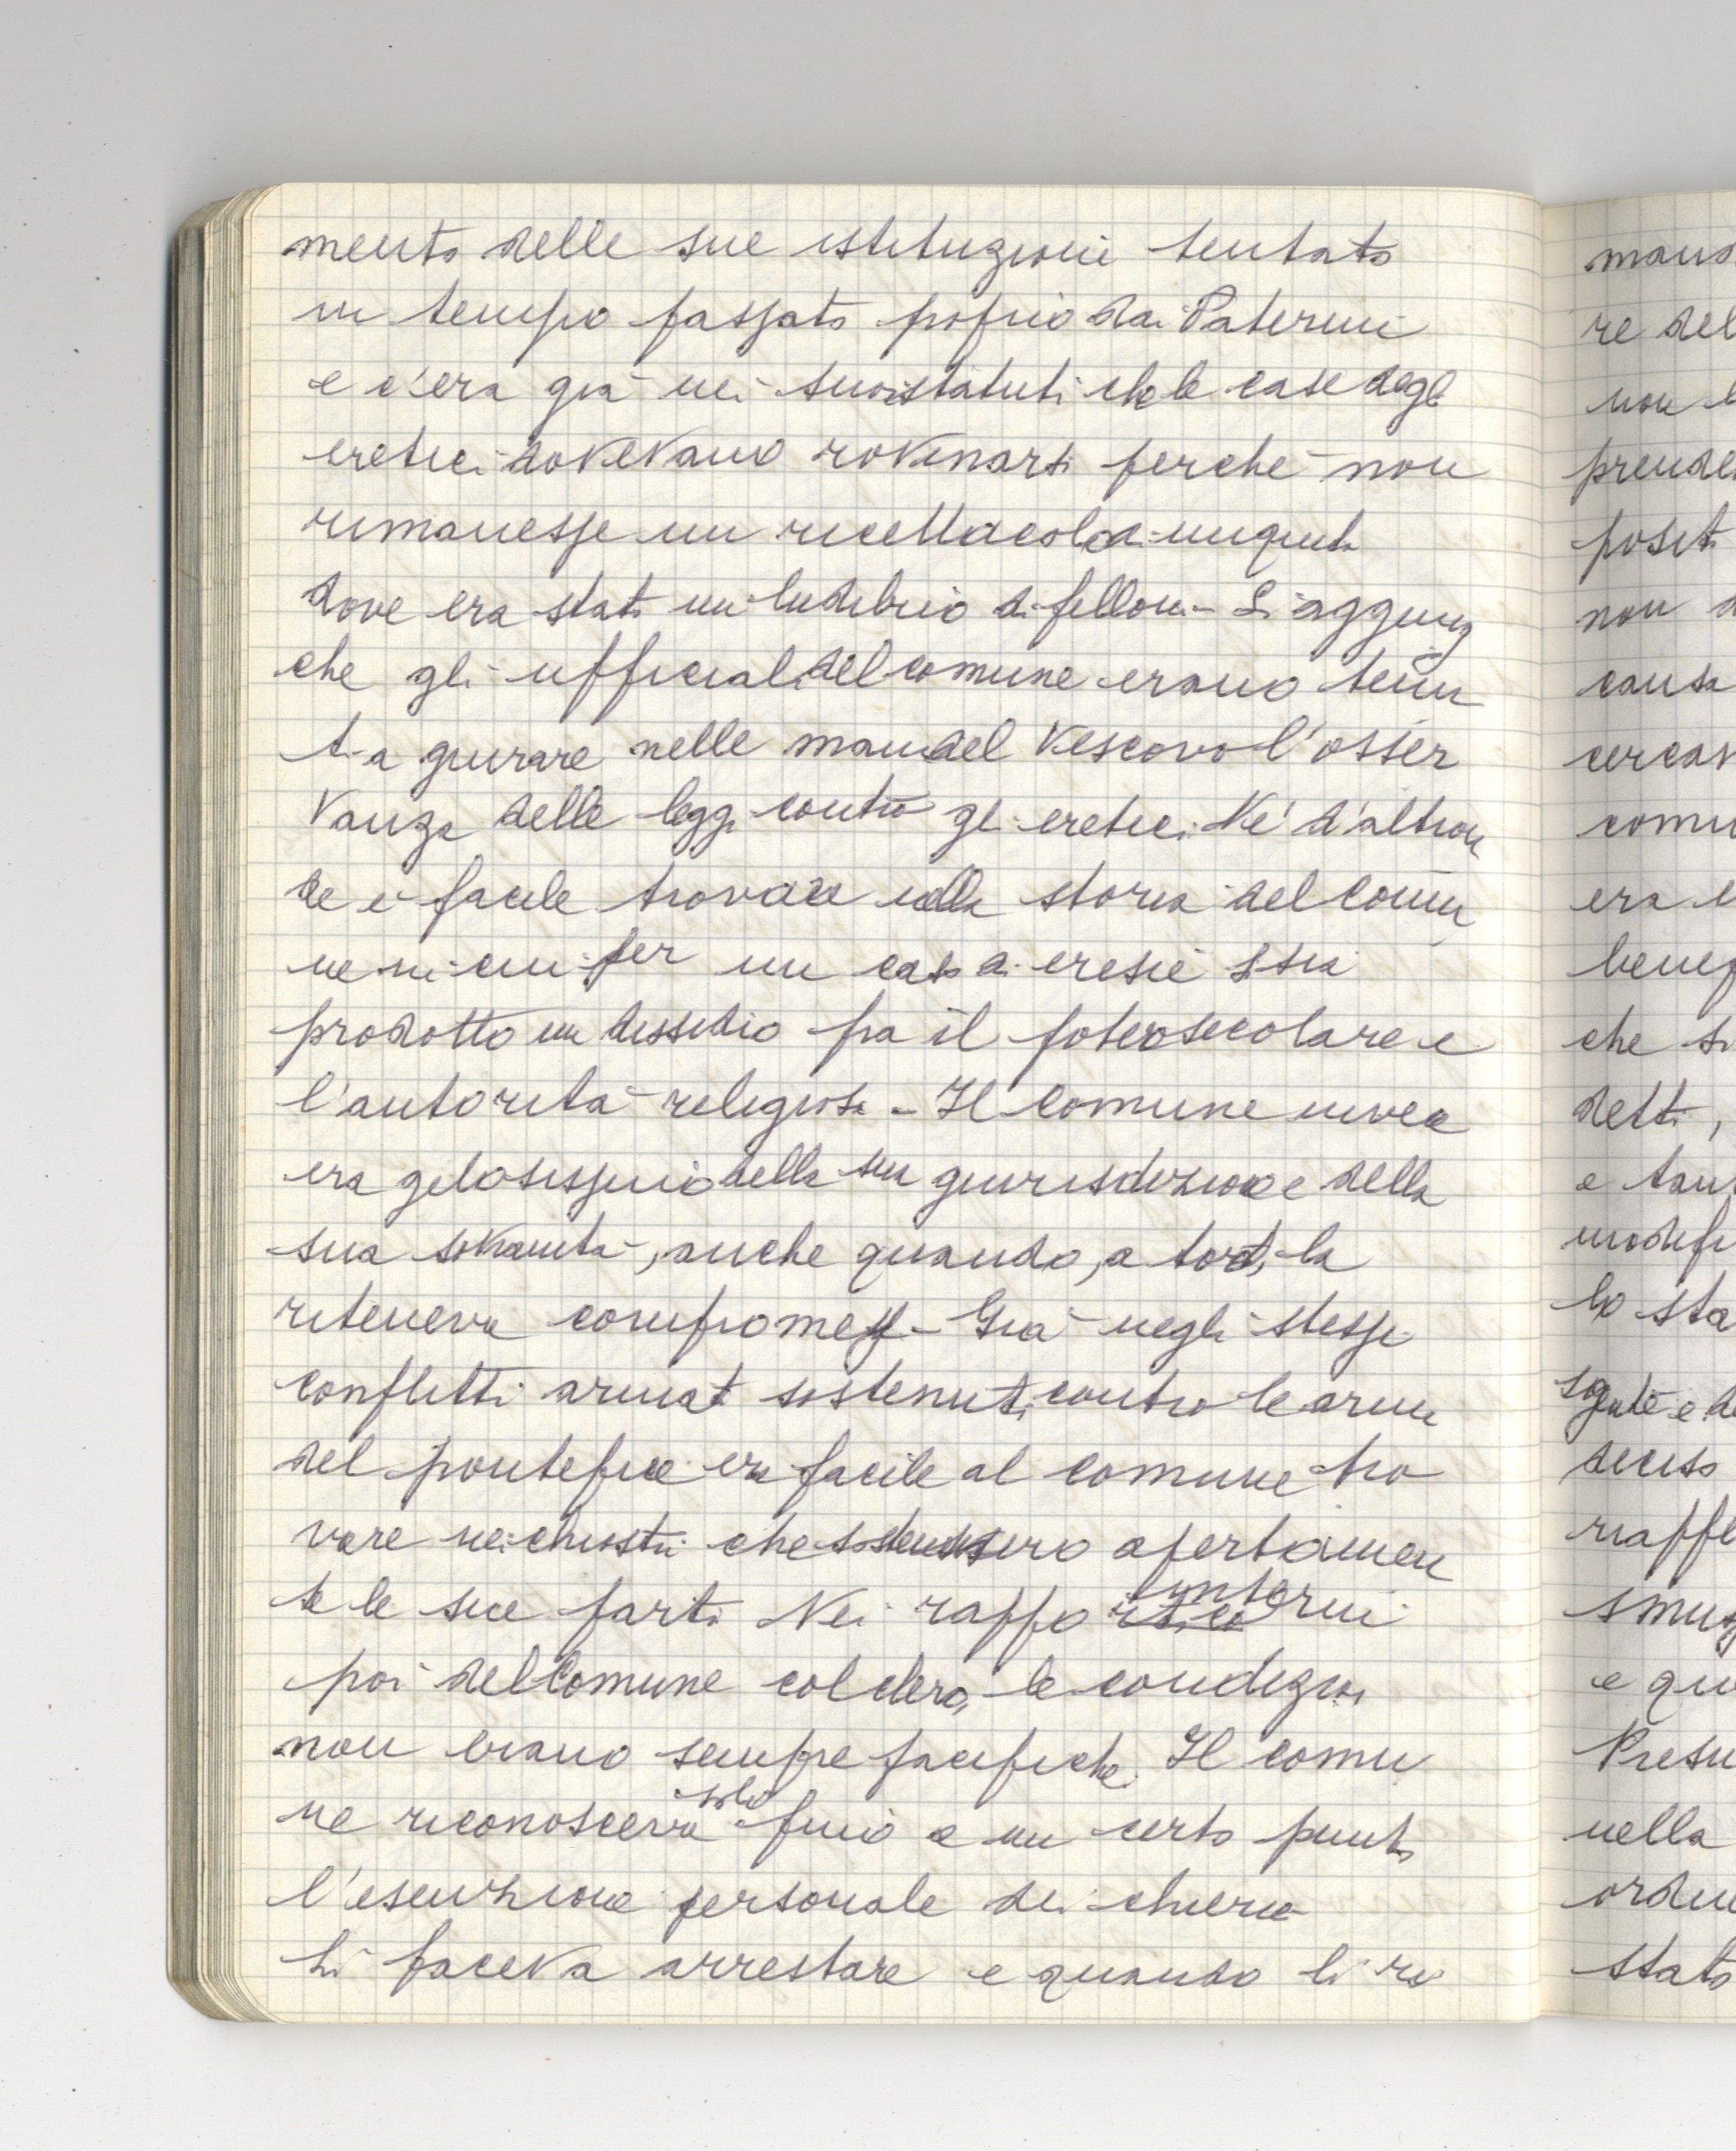 mento delle sue istituzioni tentato
in tempo passato proprio dai Paterini
e c'era già nei suoi statuti che le case degli
eretici dovevano rovinarsi perché non
rimanesse un ricettacolo di
dove era stato un ludibrio di felloni - Si aggiung
che gli ufficiali del comune erano tenu
ti a giurare nelle mani del Vescovo l'osser
vanza delle leggi contro gli eretici. Né d'altron
de è facile trovare nella storia del comu
ne in cui per un caso di eresie si sia
prodotto un dissidio fra il potere secolare e
l'autorità religiosa - Il comune invece
era gelosissimo della sua giurisdizione e della
sua sovranità, anche quando, a torto, la
riteneva compromessa - Già negli stessi
conflitti armati sostenuti contro le armi
del pontefice era facile al comune tro
vare nei chiostri che sostenessero apertamen
te le sue parti Nei rapporti interni
poi del Comune col clero, le condizioni
non erano sempre pacifiche. Il comu
ne riconosceva solo fino a un certo punto
l'esenzione personale dei chierici
li faceva arrestare e quando li ri
mano
re del
non e
prende
posit
non d
causa
cercav
comu
era e
benef
che si
detti,
e tan
modifi
lo sta
gente e d
deciso
riaffe
smuz
e qu
Presu
nella
ordin
stato